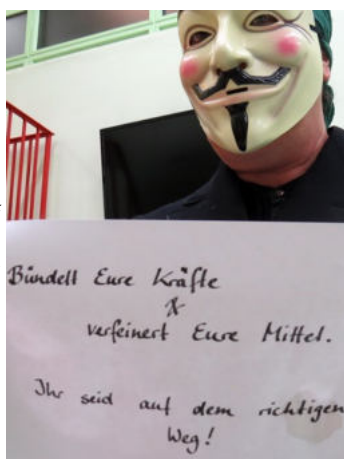 Bündelt Eure Kräfte
&
verfeinert Eure Mittel.
Ihr seid auf dem richtigen
Weg!